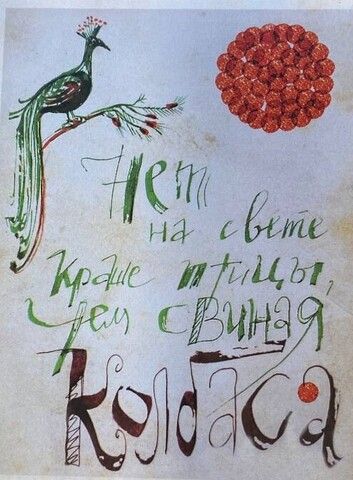 Нет
на свете
краше птицы,
чем свиная
Колбаса